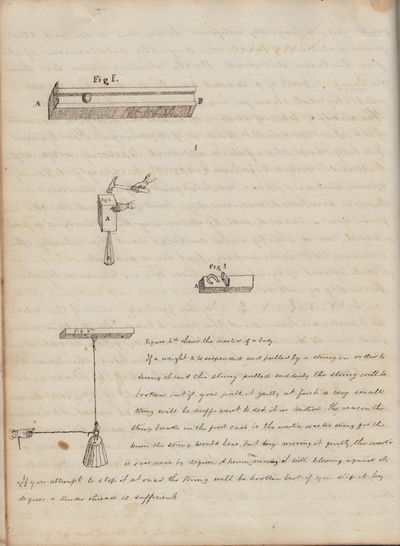 Fig 1.
A
B
Fig 2.
A
Fig 3
A
Fig 4th
Figure 4th shews the inertia of a body.
If a weight to be suspended and pulled by a string in order to
bring it and the string pulled suddenly the string will be
broken but if you pull it gently at first a very small
string will be sufficient to set it in motion. The reason the
string breaks in the first case is the inertia was too strong for the
the string would bear, but by moving it gently, the inertia
is over come by degrees. A person may it with blowing against it
If you attempt to stop it at once the string will be broken but if you stop it by
degrees, a slender thread is sufficient